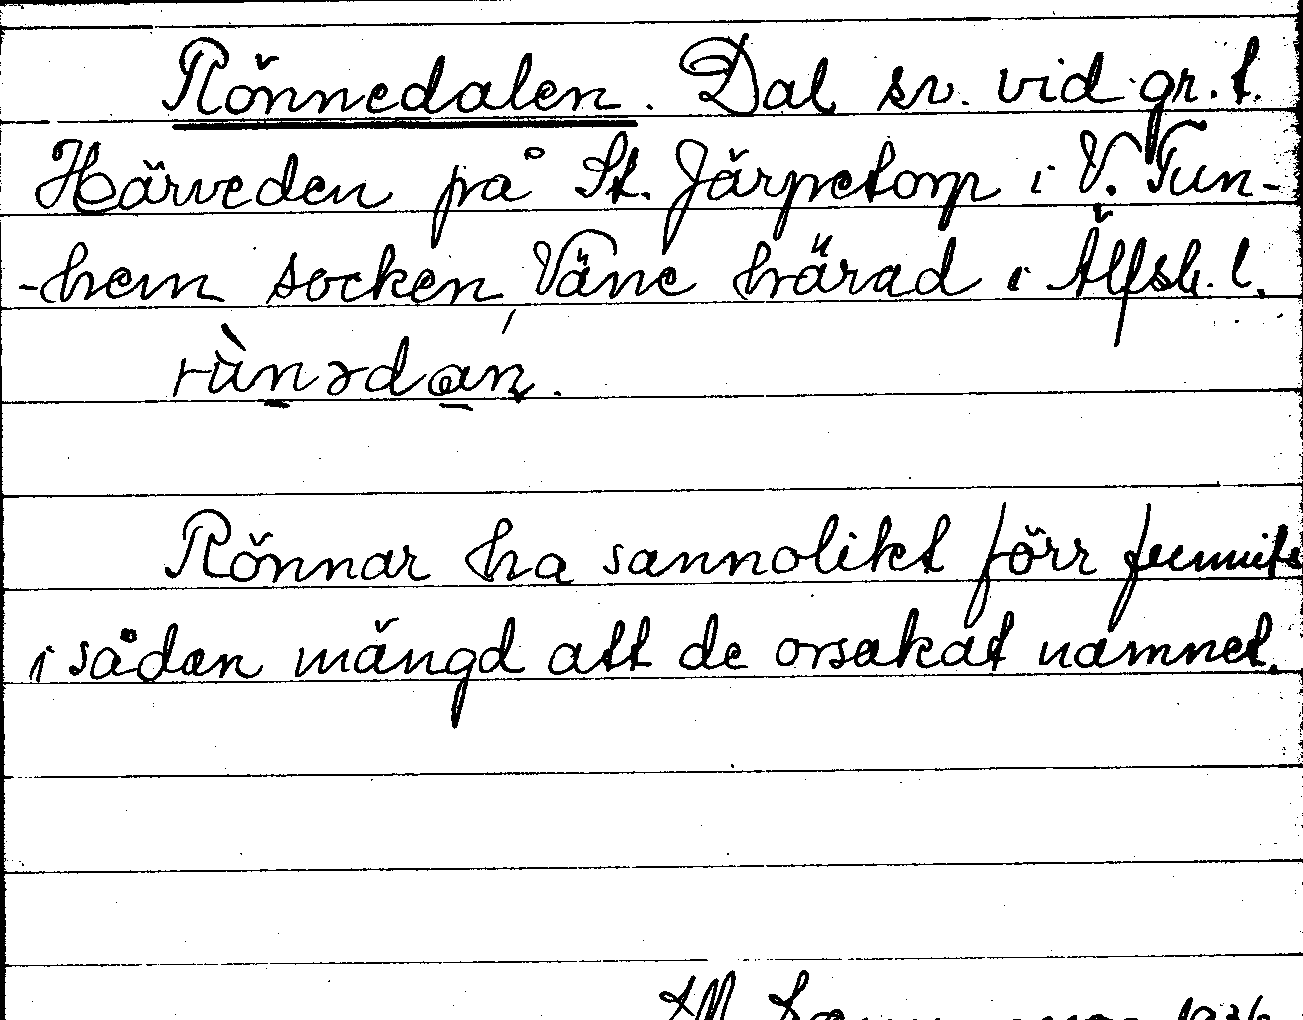 Rönnedalen. Dal sv. vid gr. t.
Härveden på St. Järpetorp i V. Tun-
-hem socken Väne härad i Älfsb. l.
rùnədán.
Rönnar ha sannolikt förr funnits
i sådan mängd att de orsakat namnet.